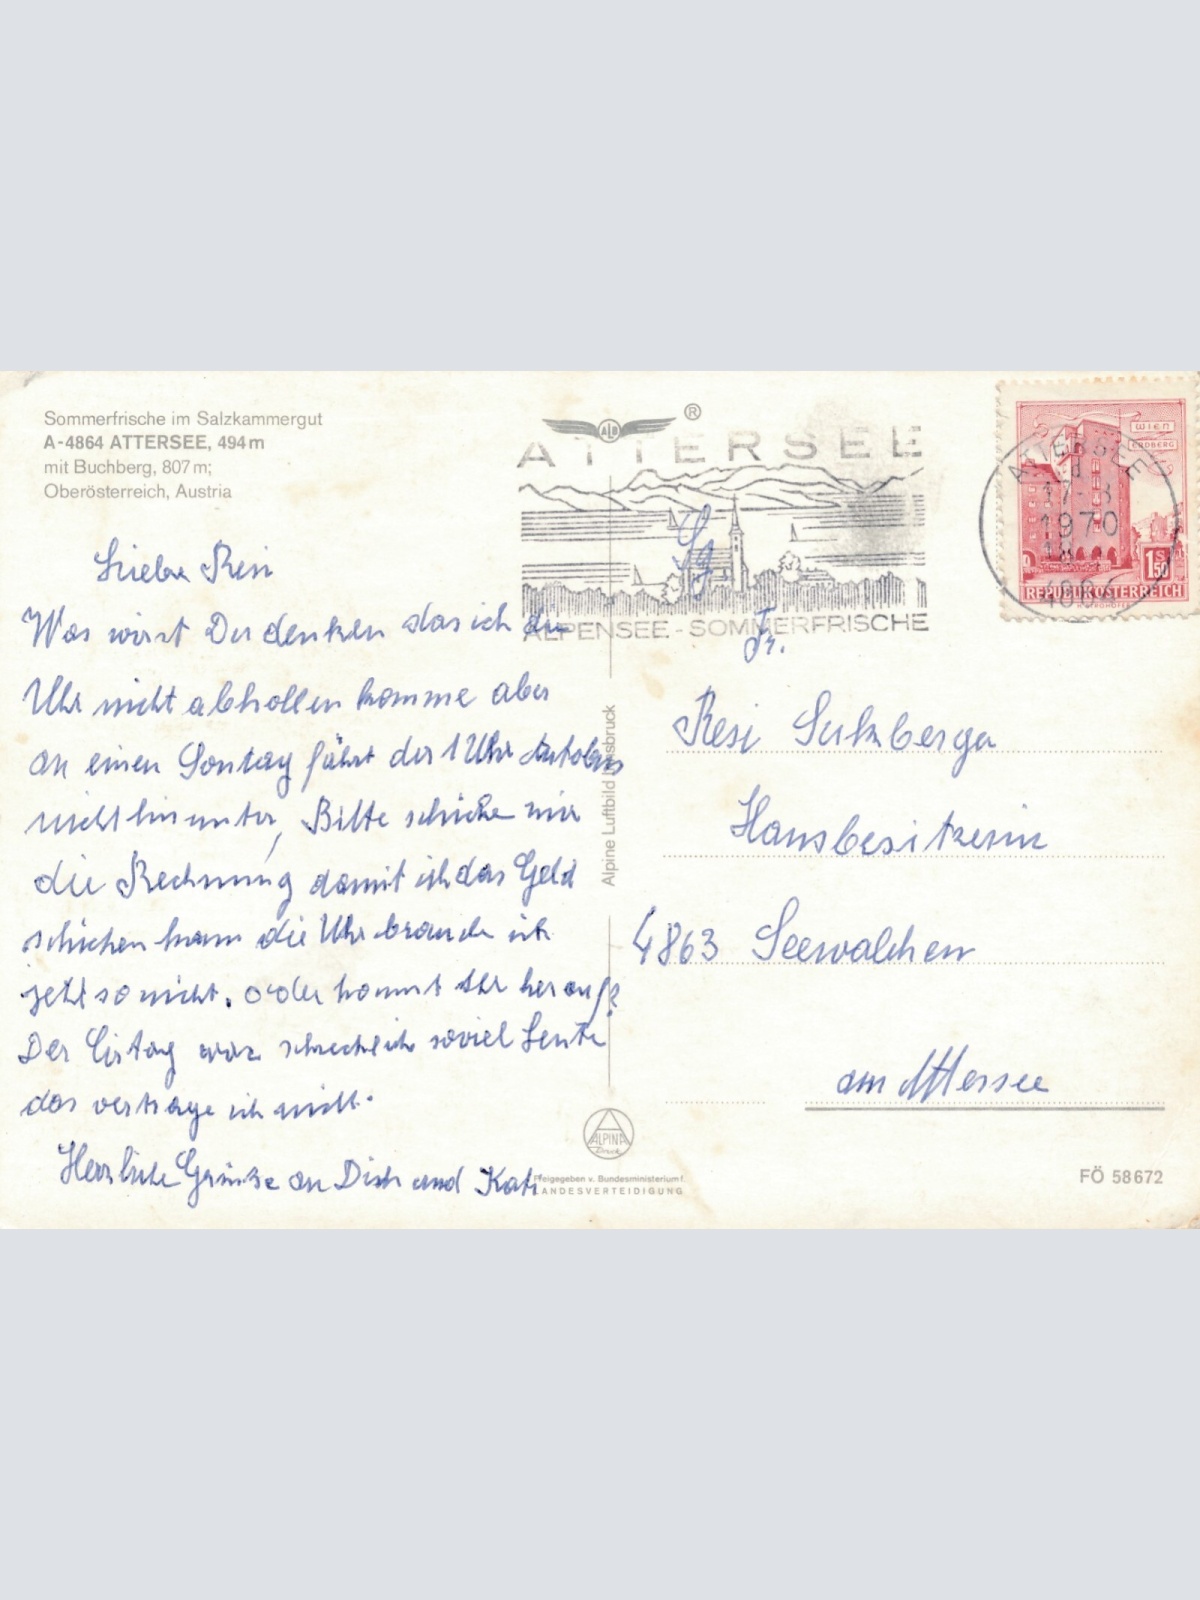 Sommerfrische im Salzkammergut
A-4864 ATTERSEE, 494 m
mit Buchberg, 807 m;
Oberösterreich, Austria
ALB ®
ATTERSEE
ALPENSEE - SOMMERFRISCHE
ATTERSEE
1970
WIEN
ERDBERG
1 S 50
REPUBLIK ÖSTERREICH
Liebe Resi
Was wirst Du denken das ich die
Uhr nicht abhollen komme aber
an einen Sontag fährt der 1 Uhr Autobus
nicht hinunter, Bitte schicke mir
die Rechnung damit ich das Geld
schicken kann die Uhr brauche ich
jetzt so nicht. oder kommt Ihr herauf?
Der Kirtag war schrecklich soviel Leute
das vertrage ich nicht.
Herzliche Grüsse an Dich und Kati
Sg.
Fr.
Resi Sulzberger
Hausbesitzerin
4863 Seewalchen
am Attersee
Alpine Luftbild Innsbruck
ALPINA
Druck
Freigegeben v. Bundesministerium f.
LANDESVERTEIDIGUNG
FÖ 58672